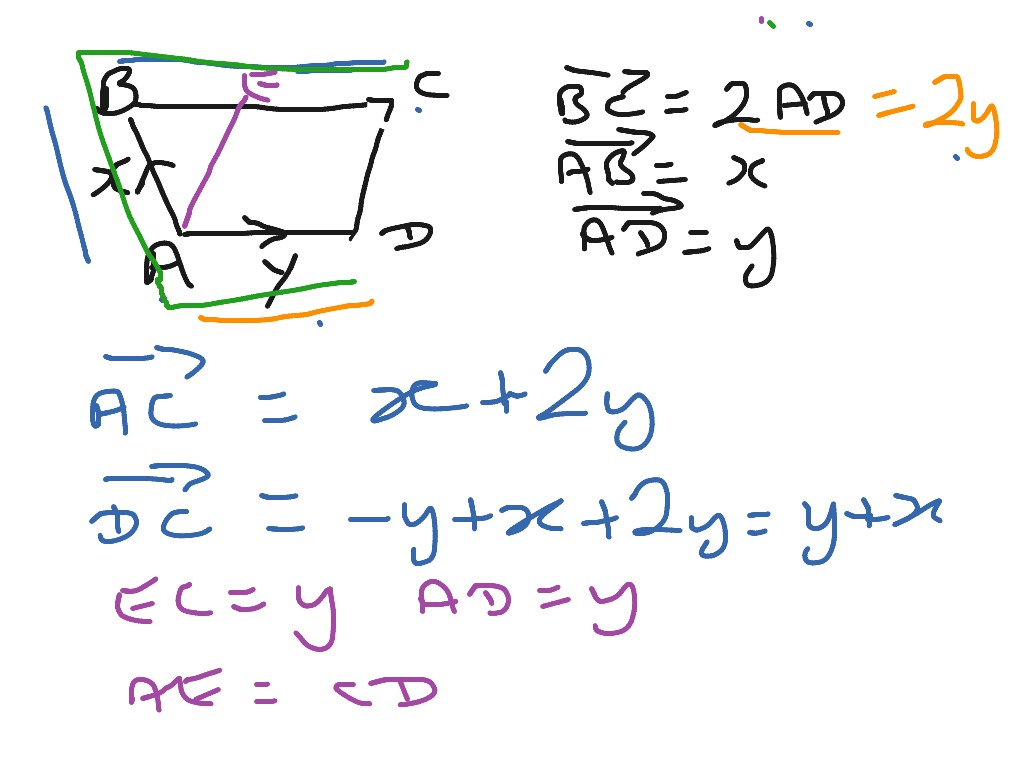 B E C
x
A y D
BC = 2AD = 2y
AB = x
AD = y
AC = x+2y
DC = -y+x+2y = y+x
EC = y AD = y
AE = CD